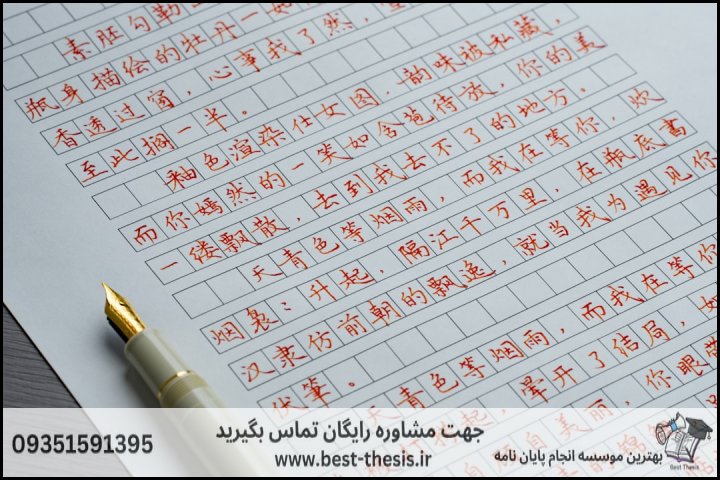 素胚勾勒
瓶身描绘的牡丹一如
香透过窗，心事我了然，
至此搁一半。
釉色渲染仕女图，韵味被私藏，
而你嫣然的一笑如含苞待放，你的美
一缕飘散，去到我去不了的地方。
天青色等烟雨，而我在等你，炊
烟袅：升起，隔江千万里，在瓶底书
汉隶仿前朝的飘逸，就当我为遇见你
伏筆。
天青色等烟雨，而我在等你
起，晕开了结局，如
自美丽，你眼带
جهت مشاوره رایگان تماس بگیرید
09351591395
www.best-thesis.ir
بهترین موسسه انجام پایان نامه
Best Thesis